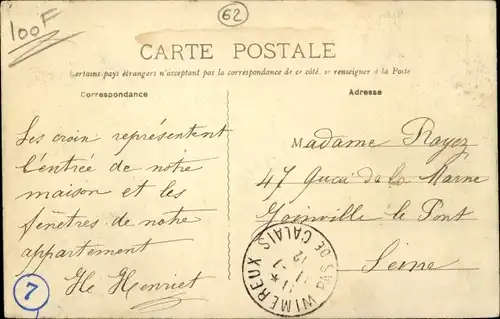 100F
62
CARTE POSTALE
Certains pays étrangers n'acceptant pas la correspondance de ce côté, se renseigner à la Poste
Correspondance
Adresse
Les croix représentent
l'entrée de notre
maison et les
fenêtres de notre
appartement
Henriet
7
Madame Rayez
47 Quai de la Marne
Joinville le Pont
Seine
WIMEREUX * PAS DE CALAIS